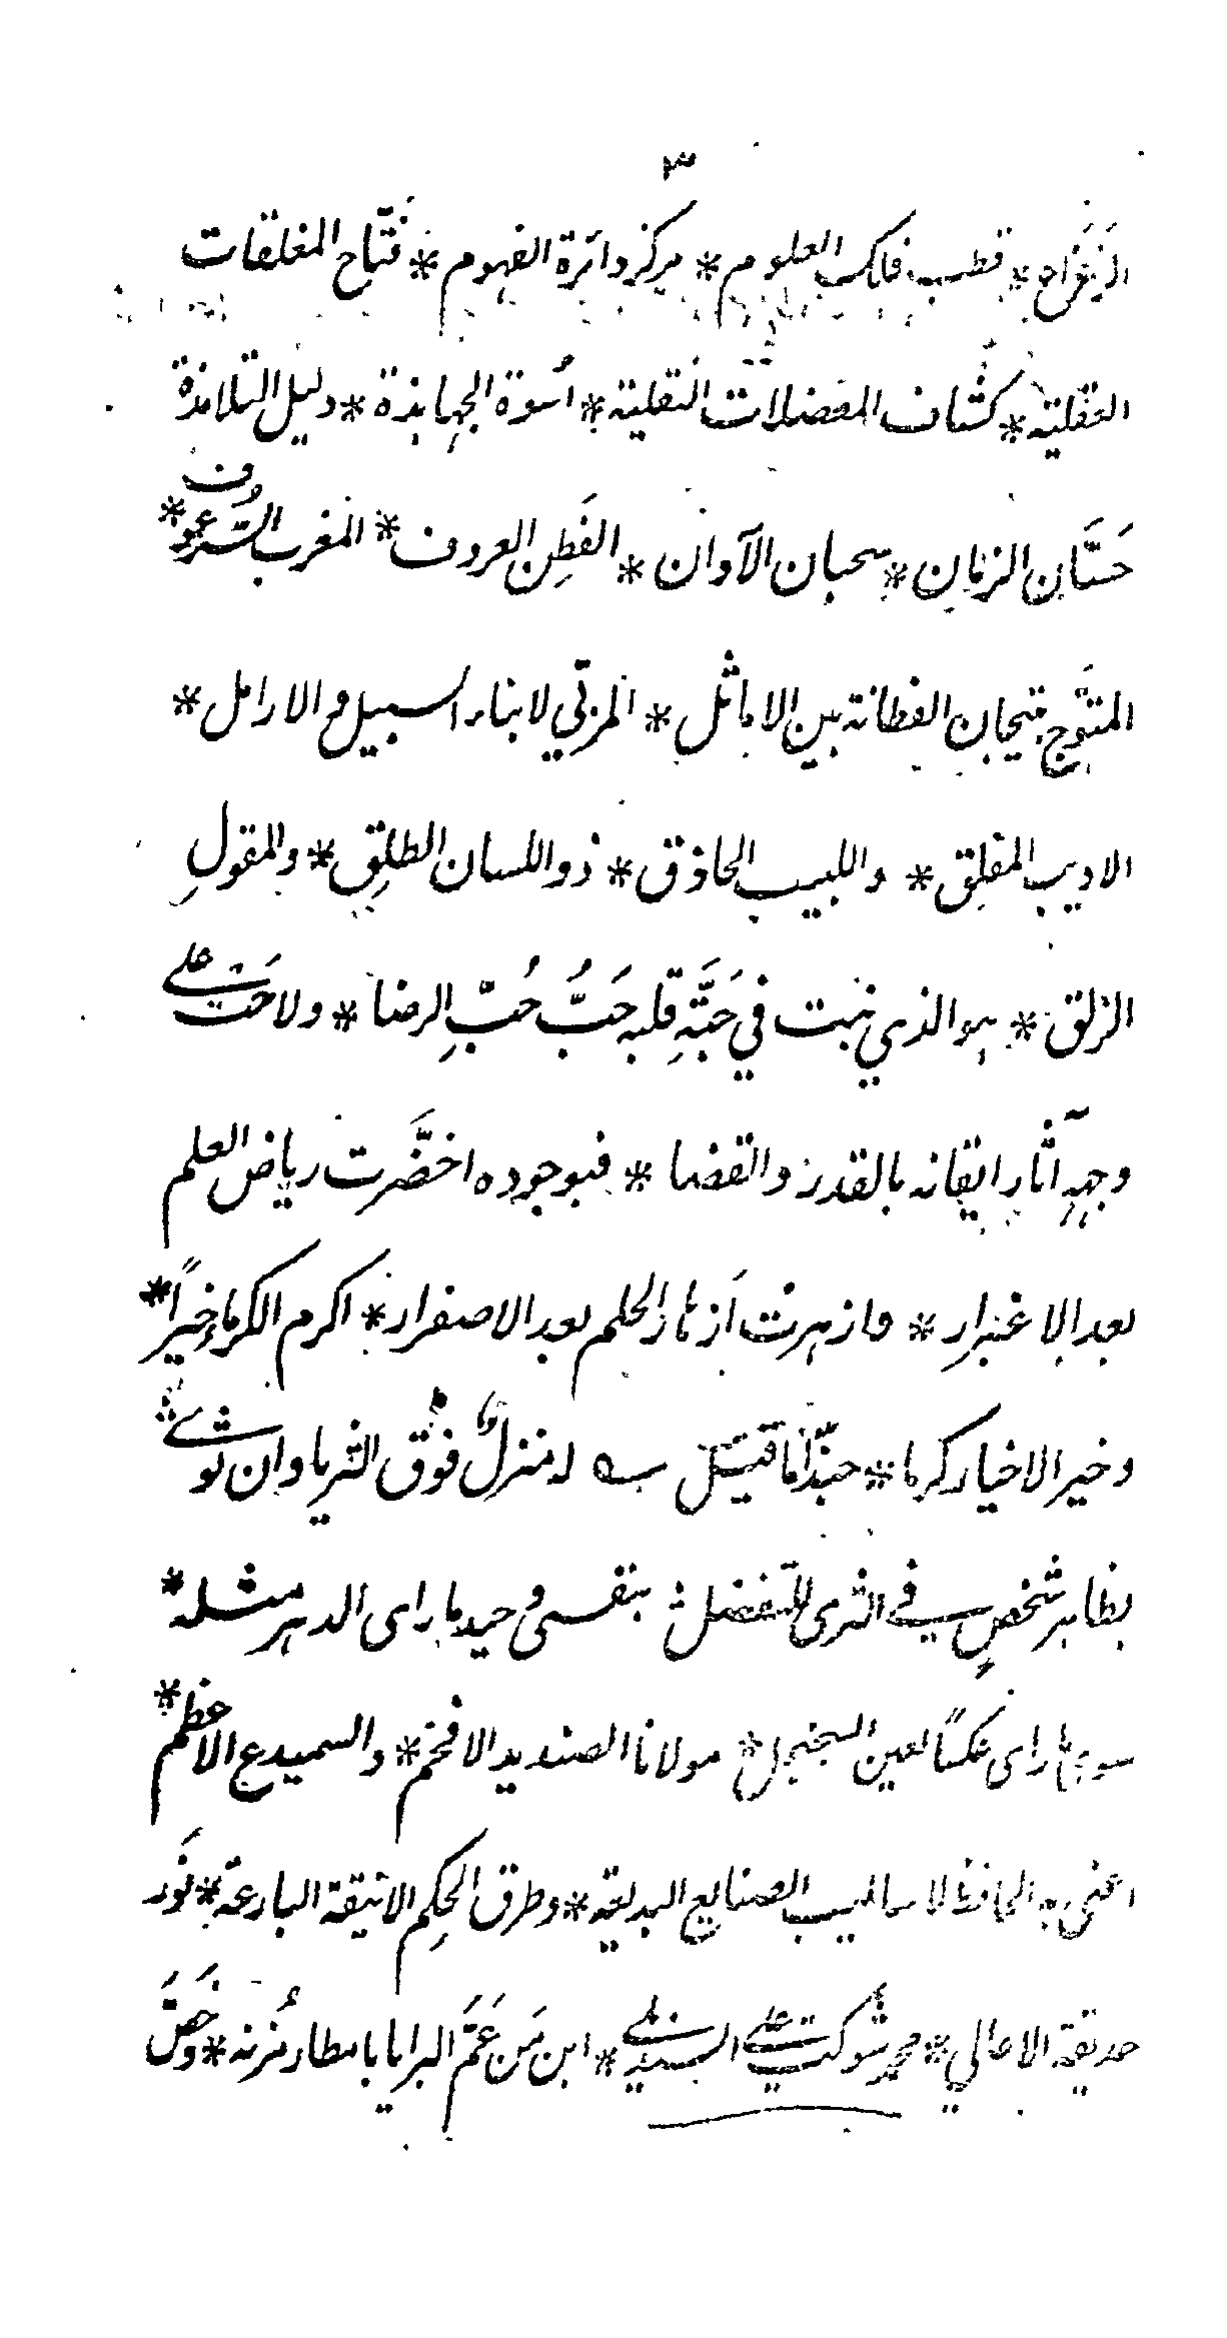 ٣
الزخّار * قطب فلك العلوم * مركز دائرة الفهوم * فَتّاح المغلقات
العقلية * كشّاف المعضلات النقلية * اُسوة الجهابذة * دليل التلامذة
حَسَّان الزمان * سحبان الآوان * الفَطِن العروف * المغرب
المتوَّج بتيجان الفطانة بين الاماثل * المربّي لابناء السبيل و الارامل *
الاديب المفلق * واللبيب الحاذق * ذو اللسان الطلِق * والمقولِ
الزلق * هو الذي نبت في حَبَّةِ قلبه حَبُّ حُبِّ الرضا * ولاحَت على
وجهِه آثار ايقانه بالقدر والقضا * فبوجوده اخضَّرت رياض العلم
بعد الاغبرار * وازهرت اَزهار الحلم بعد الاصفرار * اكرم الكرماء خيراً *
وخير الاخيار كرما * حبّذا ما قيل له منزل فوق الثريا وان ثوى
بظاهر شخصٍ في الثرى للتفضل بنفسى وحيد ما راى الدهر مثله *
سوى ما راى عكساً لعين السجنجل * مولانا الصنديد الافخم * والسميدع الاعظم *
اعنى به الحافظ لاساليب الصنايع البديعة * وطرق الحِكم الانيقة البارعة * نَوَّر
حديقة الاعالي * محمد شوكت على السنديلي * ابن مَن عَمَّ البرايا بامطار مُزنه * وخَصَّ